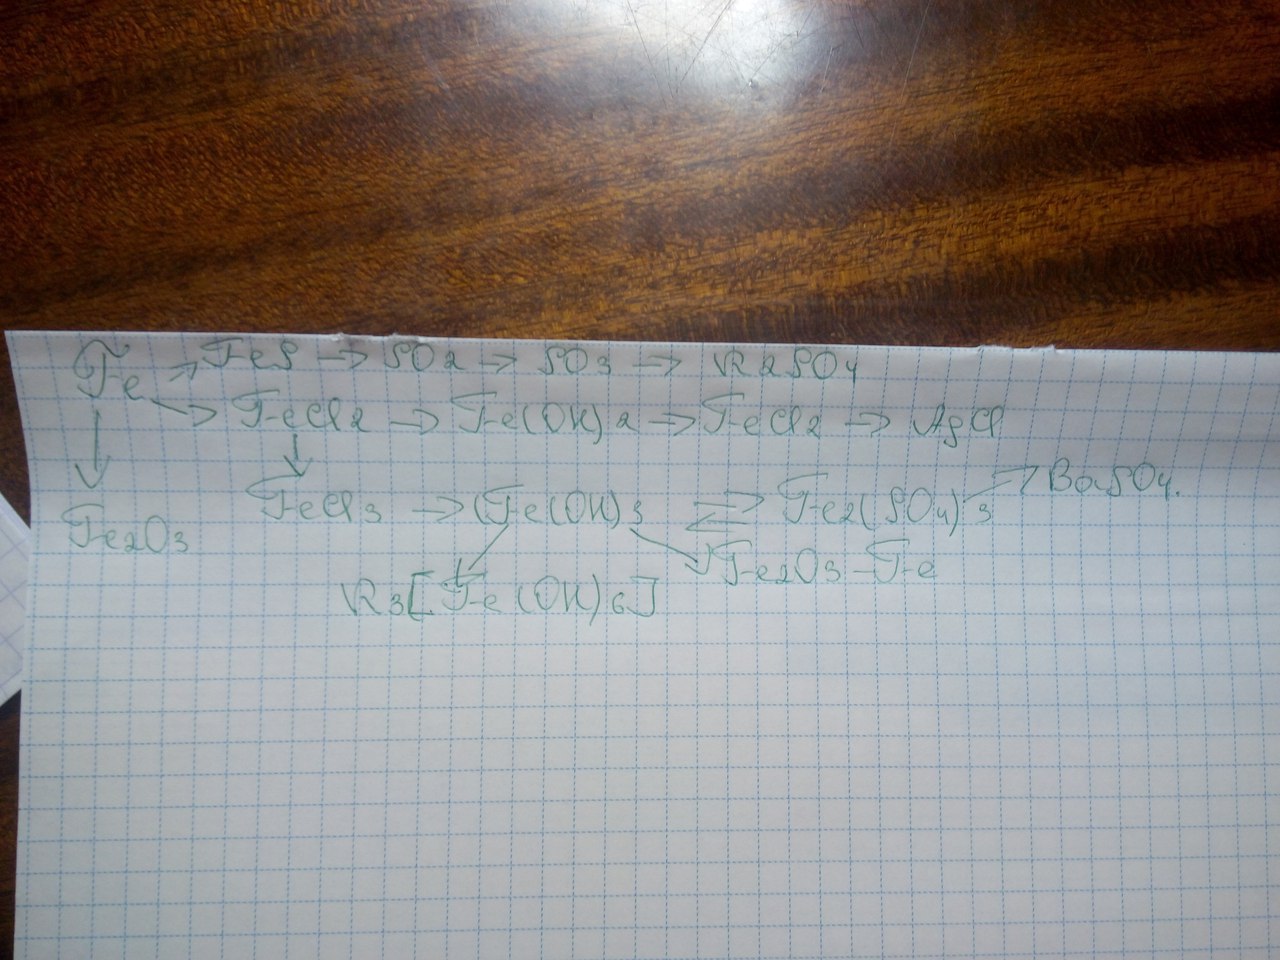 Fe → FeS → SO2 → SO3 → K2SO4
→ FeCl2 → Fe(OH)2 → FeCl2 → AgCl
↓ ↓
Fe2O3 FeCl3 → (Fe(OH)3 ⇄ Fe2(SO4)3 → BaSO4.
K3[Fe(OH)6] Fe2O3-Fe